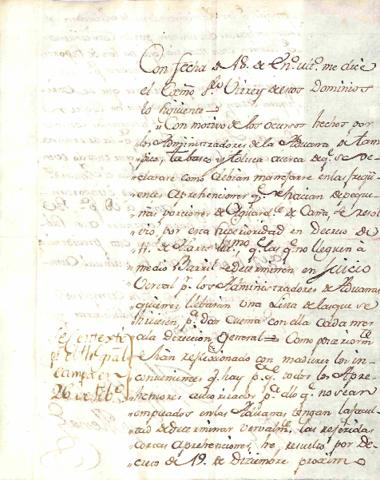 Con fecha de 18. de En.º ult.º me dice
el Exmo S.or Virrey de estos Dominios
lo siguiente
"Con motivo de los ocursos hechos por
los Administradores de la Aduana de Tam
pico, Tabasco y Toluca acerca de q.e se de
clarase como debian manejarse en las freqü
entes aprehensiones q.e se hacian de peque
ñas porciones de Aguard.te de Caña, se resol
vió por esta Superioridad en Decreto de
de Marzo q.e las q.e no lleguen á
medio Barril se determinen en juicio
verval p.r los Administradores de Aduanas
quienes llebarán una Lista de las que se
hiciesen, p.a dar cuenta con ella cada mes
a la Direccion General. Como posteriorm.te
se han reflexionado con madurez los in
convenientes q.e hay p.a q.e todos los Apre
hensores autorizados p.a ello q.e no sean
empleados en las Aduanas tengan la facul
tad de determinar vervalm.te las referidas
cortas aprehensiones, he resuelto por de
creto de 19. de Diciembre proximo
26 de Feb.o